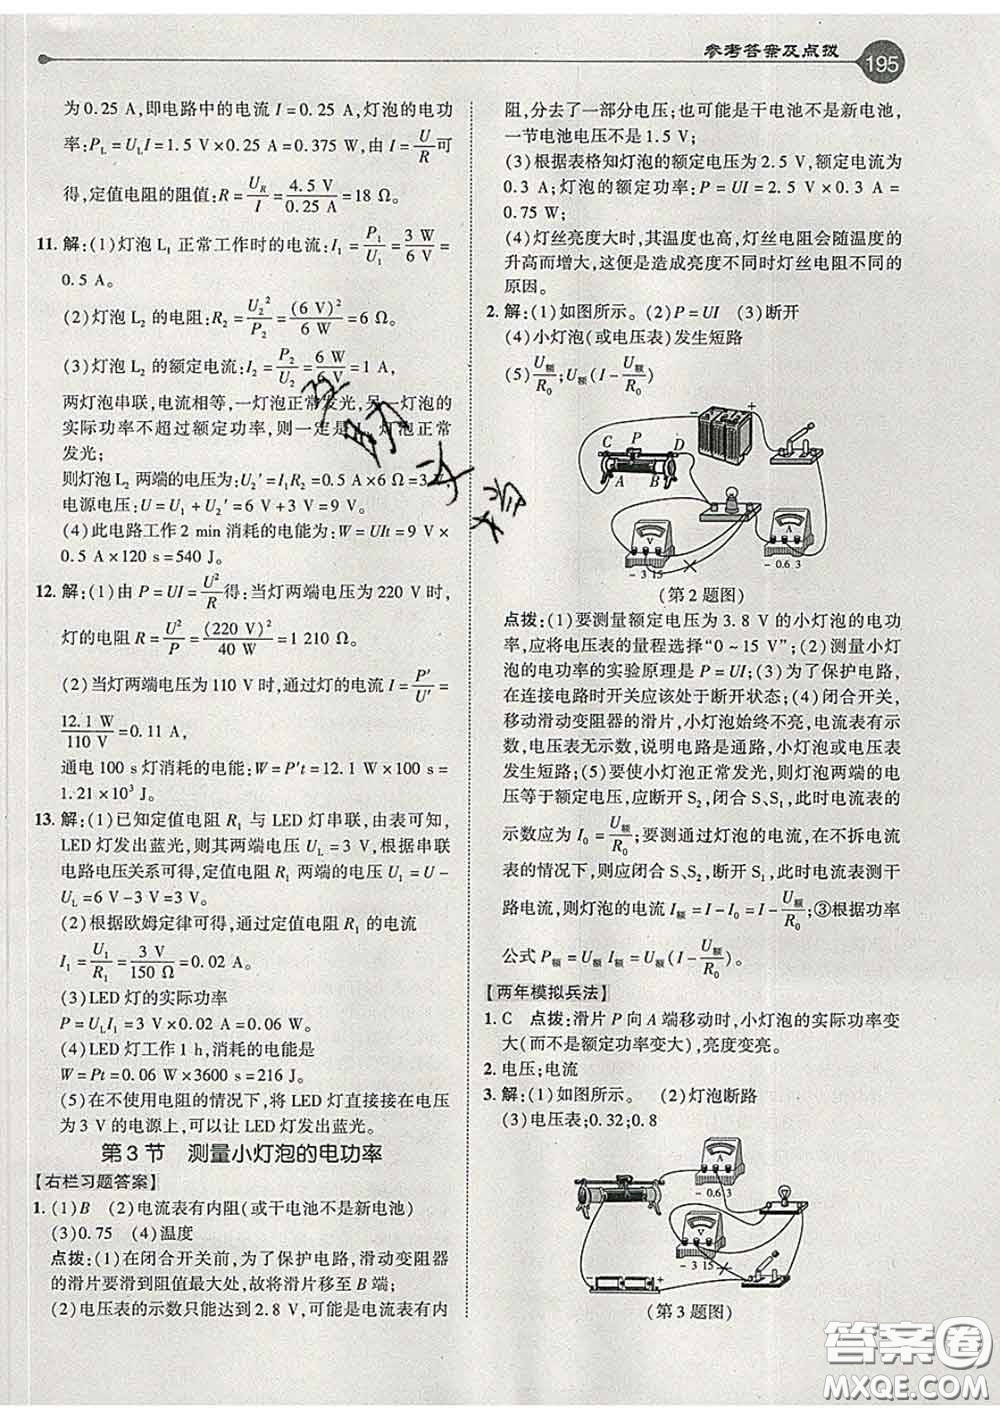 参考答案及点拨
195
为0.25 A,即电路中的电流 I=0.25 A,灯泡的电功
率:P_L=U_L I=1.5 V×0.25 A=0.375 W,由 I=U/R 可
得,定值电阻的阻值:R=U_R/I=4.5 V/0.25 A=18 Ω。
11. 解:(1)灯泡 L₁ 正常工作时的电流:I₁=P₁/U₁=3 W/6 V=
0.5 A。
(2)灯泡 L₂ 的电阻:R₂=U₂²/P₂=(6 V)²/6 W=6 Ω。
(3)灯泡 L₂ 的额定电流:I₂=P₂/U₂=6 W/6 V=1 A,
两灯泡串联,电流相等,一灯泡正常发光,另一灯泡的
实际功率不超过额定功率,则一定是 L₁ 灯泡正常
发光;
则灯泡 L₂ 两端的电压为:U₂'=I₁R₂=0.5 A×6 Ω=3 V,
电源电压:U=U₁+U₂'=6 V+3 V=9 V。
(4)此电路工作 2 min 消耗的电能为:W=UIt=9 V×
0.5 A×120 s=540 J。
12. 解:(1)由 P=UI=U²/R得:当灯两端电压为 220 V 时,
灯的电阻 R=U²/P=(220 V)²/40 W=1 210 Ω。
(2)当灯两端电压为 110 V 时,通过灯的电流 I=P'/U'=
12.1 W/110 V=0.11 A,
通电 100 s 灯消耗的电能:W=P't=12.1 W×100 s=
1.21×10³ J。
13. 解:(1)已知定值电阻 R₁ 与 LED 灯串联,由表可知,
LED 灯发出蓝光,则其两端电压 U_L=3 V,根据串联
电路电压关系可得,定值电阻 R₁ 两端的电压 U₁=U-
U_L=6 V-3 V=3 V。
(2)根据欧姆定律可得,通过定值电阻 R₁ 的电流
I₁=U₁/R₁=3 V/150 Ω=0.02 A。
(3)LED 灯的实际功率
P=U_L I₁=3 V×0.02 A=0.06 W。
(4)LED 灯工作 1 h,消耗的电能是
W=Pt=0.06 W×3600 s=216 J。
(5)在不使用电阻的情况下,将 LED 灯直接接在电压
为 3 V 的电源上,可以让 LED 灯发出蓝光。
第 3 节 测量小灯泡的电功率
【右栏习题答案】
1. (1)B (2)电流表有内阻(或干电池不是新电池)
(3)0.75 (4)温度
点拨:(1)在闭合开关前,为了保护电路,滑动变阻器
的滑片要滑到阻值最大处,故将滑片移至 B 端;
(2)电压表的示数只能达到 2.8 V,可能是电流表有内
阻,分去了一部分电压;也可能是干电池不是新电池,
一节电池电压不是 1.5 V;
(3)根据表格知灯泡的额定电压为 2.5 V,额定电流为
0.3 A;灯泡的额定功率:P=UI=2.5 V×0.3 A=
0.75 W;
(4)灯丝亮度大时,其温度也高,灯丝电阻会随温度的
升高而增大,这便是造成亮度不同时灯丝电阻不同的
原因。
2. 解:(1)如图所示。 (2)P=UI (3)断开
(4)小灯泡(或电压表)发生短路
(5)U额/R₀;U额(I-U额/R₀)
- +
C P D
A B
V
- 3 15
A
-0.6 3
(第 2 题图)
点拨:(1)要测量额定电压为 3.8 V 的小灯泡的电功
率,应将电压表的量程选择“0~15 V”;(2)测量小灯
泡的电功率的实验原理是 P=UI;(3)为了保护电路,
在连接电路时开关应该处于断开状态;(4)闭合开关,
移动滑动变阻器的滑片,小灯泡始终不亮,电流表有示
数,电压表无示数,说明电路是通路,小灯泡或电压表
发生短路;(5)要使小灯泡正常发光,则灯泡两端的电
压等于额定电压,应断开 S₂,闭合 S、S₁,此时电流表的
示数应为 I₀=U额/R₀;要测通过灯泡的电流,在不拆电流
表的情况下,则应闭合 S、S₂,断开 S₁,此时电流表测干
路电流,则灯泡的电流 I额=I-I₀=I-U额/R₀;③根据功率
公式 P额=U额I额=U额(I-U额/R₀)。
【两年模拟兵法】
1. C 点拨:滑片 P 向 A 端移动时,小灯泡的实际功率变
大(而不是额定功率变大),亮度变亮。
2. 电压;电流
3. 解:(1)如图所示。 (2)灯泡断路
(3)电压表;0.32;0.8
A
-0.6 3
V
- 3 15
- +
(第 3 题图)
答案卷
MXQE.COM